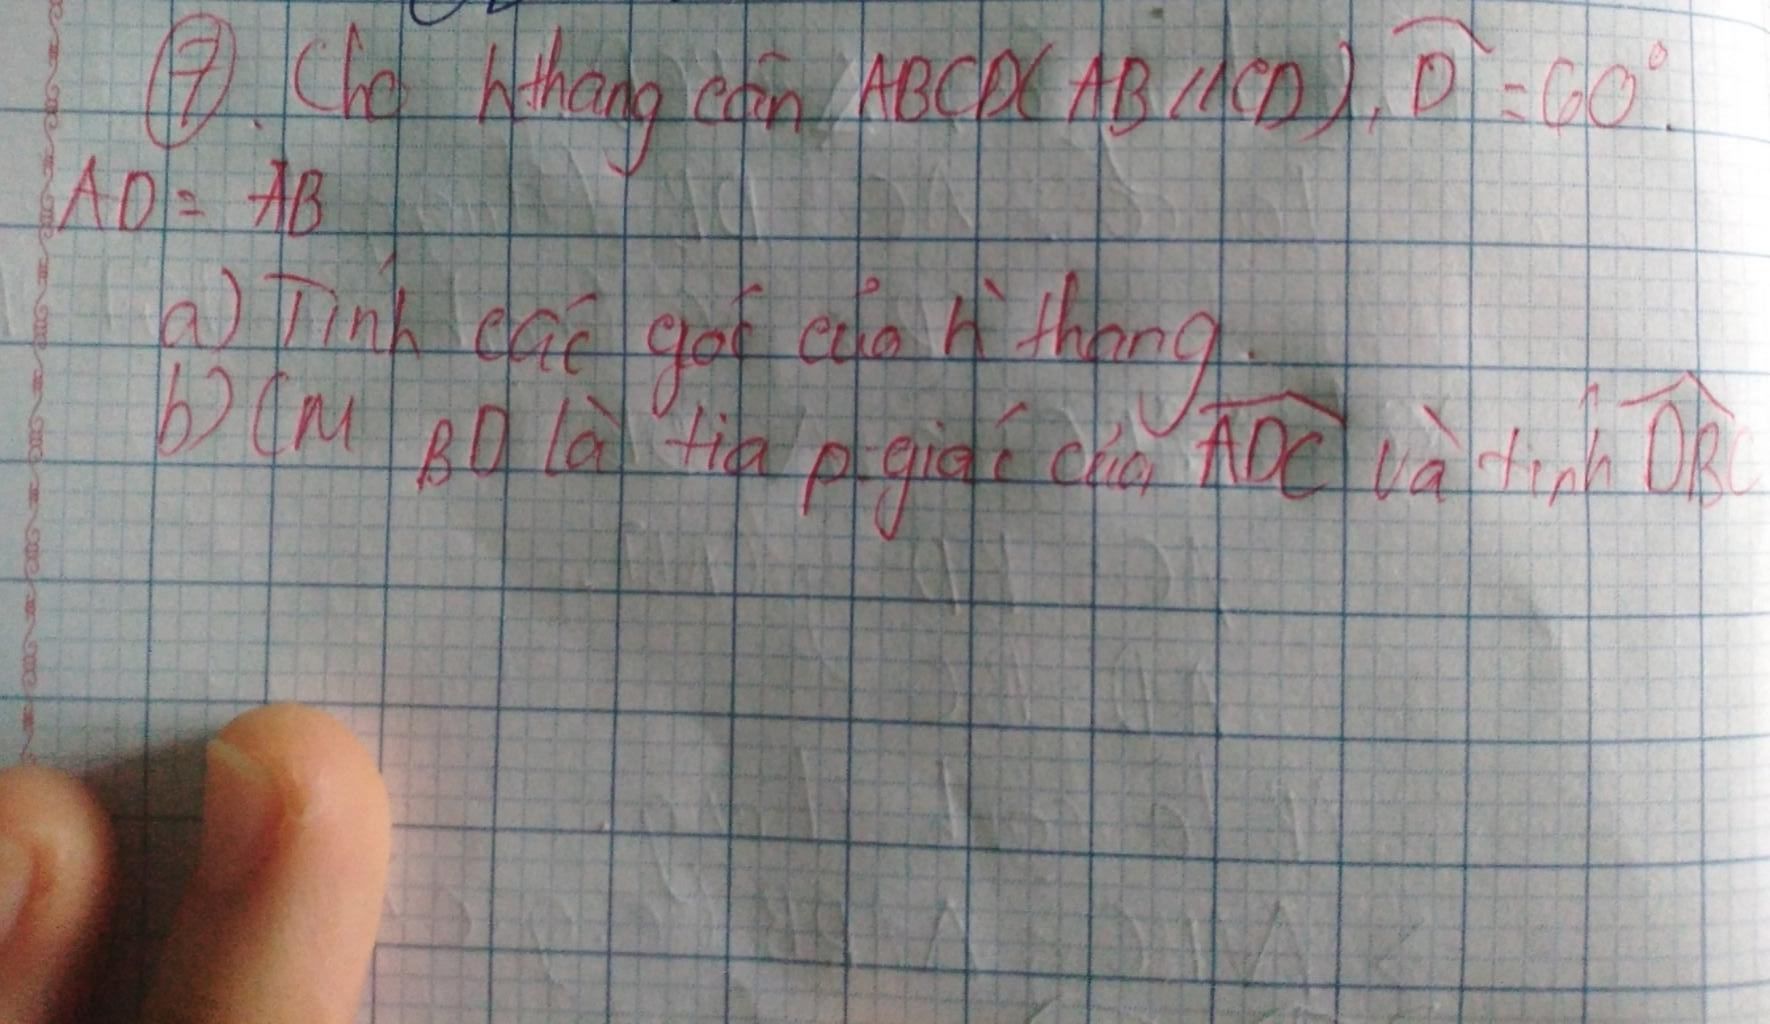 ⑦. Cho hthang cân ABCD(AB//CD), D̂ = 60°.
AD = AB
a) Tính các góc của h` thang.
b) CM BD là tia p.giác của ADC và tính DBC